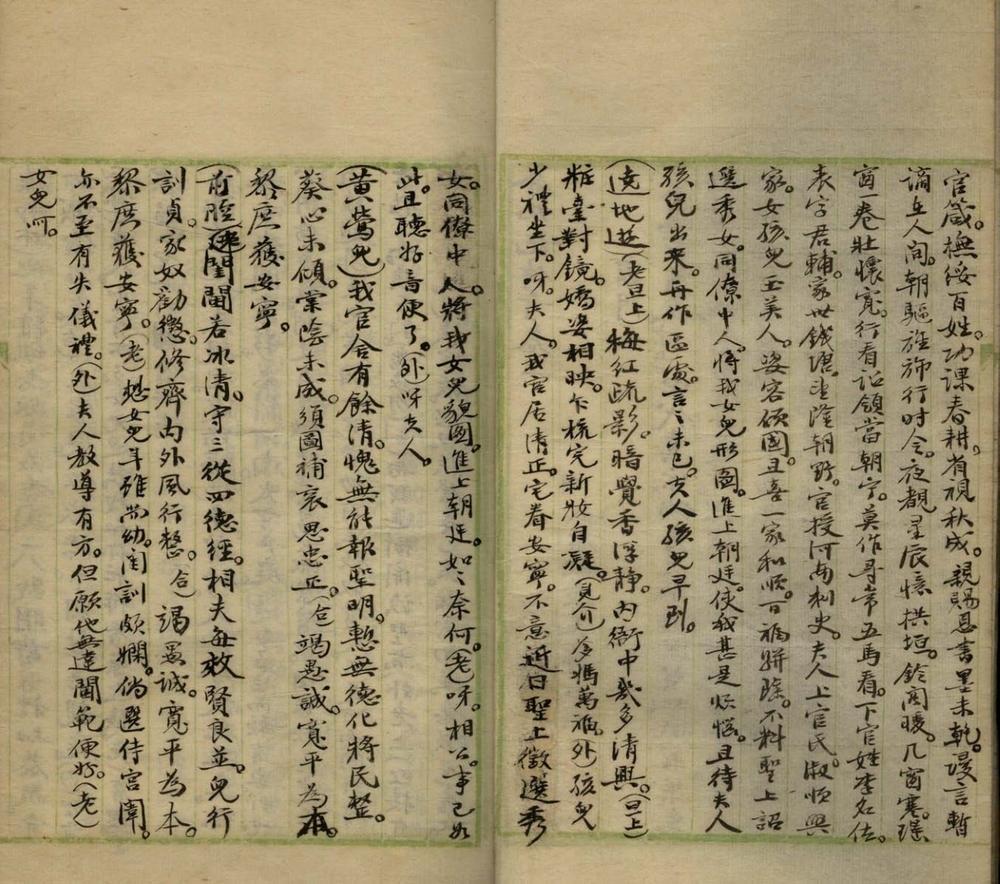 官箴。撫綏百姓。功課春耕。省視秋成。親賜恩書墨未乾。謾言暫
謫在人间。朝驅旌斾行时令。夜覩星辰憶拱垣。鈴阁暖。几窗寒。瑶
窗一卷壯懷寬。行看诏領當朝宁。莫作寻常五馬看。下官姓李名佐。
表字君輔。家世錢塘。望隆朝野。官授河南刺史。夫人上官氏。淑順興
家。女孩兒玉美人。姿容傾國。且喜一家和順。百福駢臻。不料聖上詔
選秀女。同僚中人。將我女兒形圖。進上朝廷。使我甚是烦惱。且待夫人
孩兒出来。再作區處。言之未已。夫人孩兒早到。
(遶地遊)(老旦上)梅红疏影。暗覺香浮静。内衙中幾多清興。(旦上)
粧臺對鏡。嬌姿相映。乍梳完新妝自凝。(見介)爹媽萬福。(外)孩兒
少禮坐下。呀。夫人。我官居清正。宅眷安寧。不意近日聖上徵選秀
女。同僚中人。將我女兒貌圖。進上朝廷。如之奈何。(老)呀。相公。事已如
此。且聽好音便了。(外)呀夫人。
(黄鶯兒)我官舍有餘清。愧無能報聖明。慙無德化將民整。
葵心未傾。棠陰未成。須圖補衮思忠正。(合)竭愚誠。寬平為本。
黎庶獲安寧。
(前腔)閨閫若冰清。守三從四德經。相夫每效賢良並。兒行
訓貞。家奴勸懲。修齊内外風行整。(合)竭愚誠。寬平為本。
黎庶獲安寧。(老)想女兒年雖尚幼。閨訓頗嫻。倘選侍宫闈。
亦不至有失儀禮。(外)夫人教導有方。但願他無違閫範便好。(老)
女兒呵。